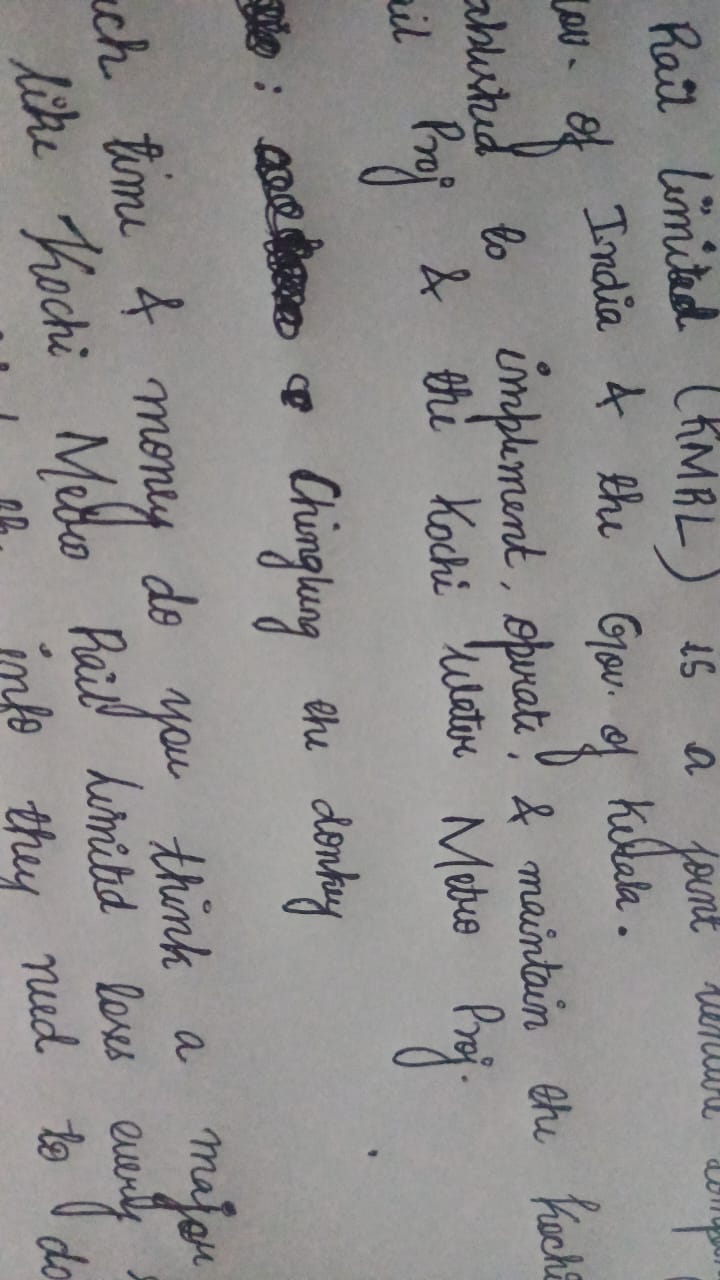 Rail Limited (KMRL) is a joint venture
Gov. of India & the Gov. of Kerala.
to implement, operate, & maintain the Kochi
Proj & the Kochi Water Metro Proj.
: Chinglung the donkey
time & money do you think a major
like Kochi Metro Rail Limited loses every
info they need to do